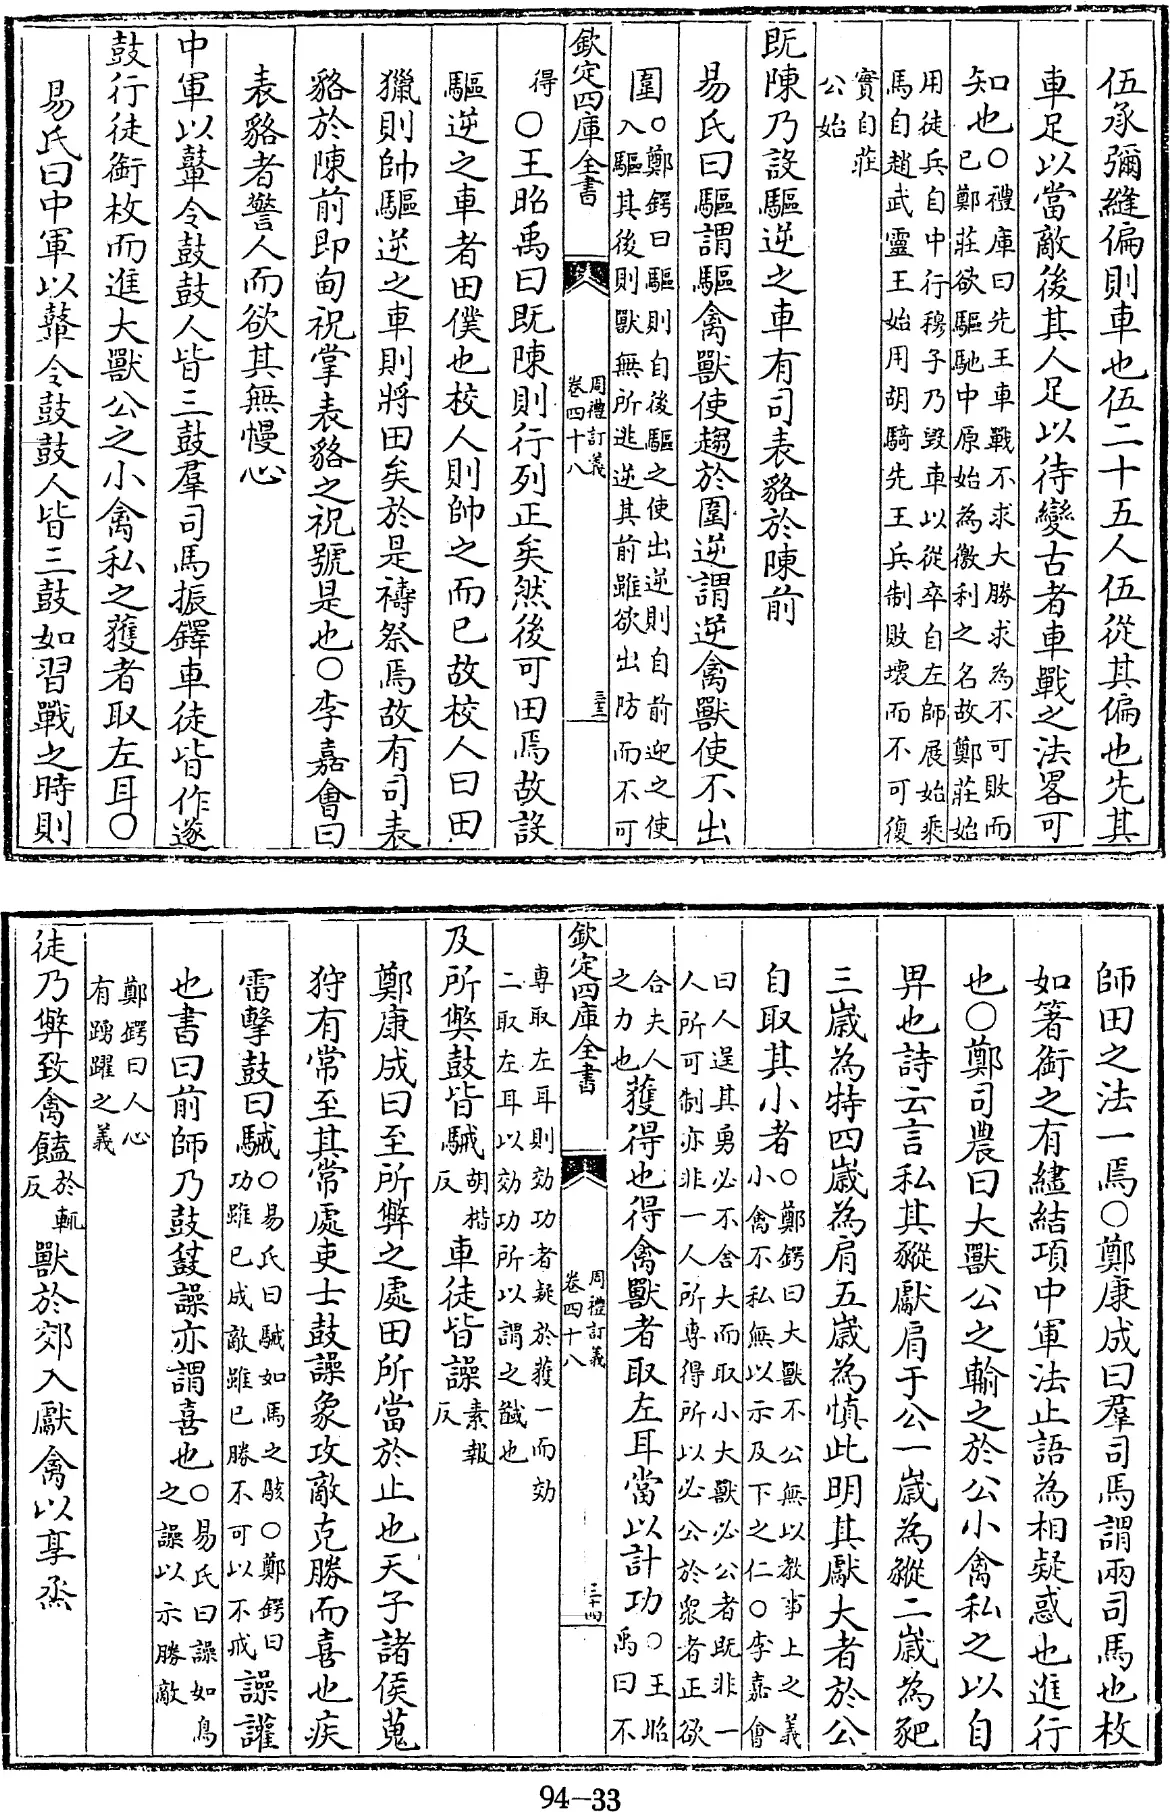 伍承彌縫偏則車也伍二十五人伍從其偏也先其
車足以當敵後其人足以待變古者車戰之法畧可
知也○禮庫曰先王車戰不求大勝求為不可敗而
已鄭莊欲驅馳中原始為徼利之名故鄭莊始
用徒兵自中行穆子乃毀車以從卒自左師展始乘
馬自趙武靈王始用胡騎先王兵制敗壞而不可復
實自莊
公始
既陳乃設驅逆之車有司表貉於陳前
易氏曰驅謂驅禽獸使趨於圍逆謂逆禽獸使不出
圍○鄭鍔曰驅則自後驅之使出逆則自前迎之使
入驅其後則獸無所逃逆其前雖欲出防而不可
欽定四庫全書
周禮訂義
卷四十八
三十三
得○王昭禹曰既陳則行列正矣然後可田焉故設
驅逆之車者田僕也校人則帥之而已故校人曰田
獵則帥驅逆之車則將田矣於是禱祭焉故有司表
貉於陳前即甸祝掌表貉之祝號是也○李嘉會曰
表貉者警人而欲其無慢心
中軍以鼙令鼓鼓人皆三鼓羣司馬振鐸車徒皆作遂
鼓行徒銜枚而進大獸公之小禽私之獲者取左耳○
易氏曰中軍以鼙令鼓鼓人皆三鼓如習戰之時則
師田之法一焉○鄭康成曰羣司馬謂兩司馬也枚
如箸銜之有繣結項中軍法止語為相疑惑也進行
也○鄭司農曰大獸公之輸之於公小禽私之以自
畀也詩云言私其豵獻肩于公一歲為豵二歲為豝
三歲為特四歲為肩五歲為慎此明其獻大者於公
自取其小者○鄭鍔曰大獸不公無以教事上之義
小禽不私無以示及下之仁○李嘉會
曰人逞其勇必不舍大而取小大獸必公者既非一
人所可制亦非一人所專得所以必公於衆者正欲
合夫人
之力也
獲得也得禽獸者取左耳當以計功○王昭
禹曰不
欽定四庫全書
周禮訂義
卷四十八
三十四
専取左耳則効功者疑於獲一而効
二取左耳以効功所以謂之馘也
及所獘鼓皆駴胡楷
反車徒皆譟素報
反
鄭康成曰至所弊之處田所當於止也天子諸侯蒐
狩有常至其常處吏士鼓譟象攻敵克勝而喜也疾
雷擊鼓曰駴○易氏曰駴如馬之駭○鄭鍔曰
功雖已成敵雖已勝不可以不戒
譟讙
也書曰前師乃鼓鼛譟亦謂喜也○易氏曰譟如鳥
之譟以示勝敵
鄭鍔曰人心
有踴躍之義
徒乃弊致禽饁於輒
反獸於郊入獻禽以享烝
94-33